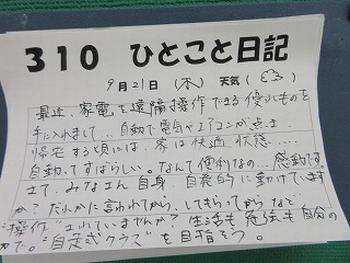 310 ひとこと日記
9月21日 (木) 天気( )
最近、家電を遠隔操作できる優れものを
手に入れまして... 自動で電気やエアコンが点き...
帰宅する頃には、家は快適状態....
自動ってすばらしい。なんて便利なの... 感動です。
さて、みなさん自身、自発的に動けています
か? だれかに言われてから、してもらってから など
"操作"されていませんか? 生活も勉強も自分の
力で。"自走式クラス"を目指そう。